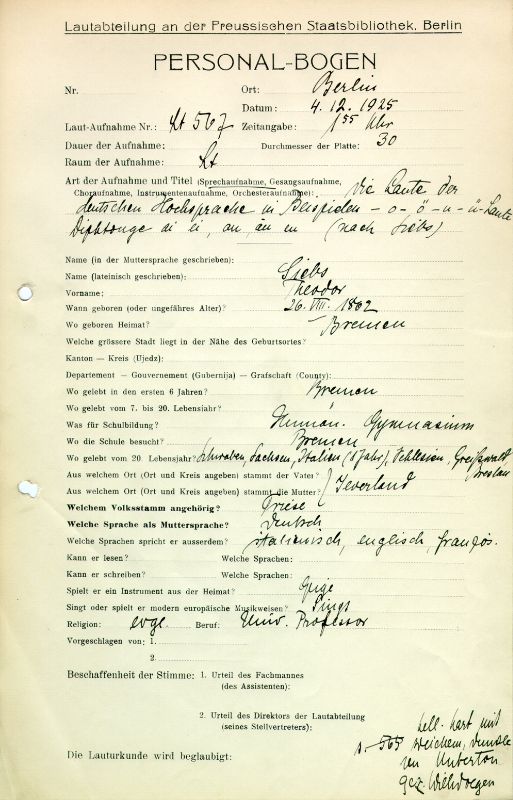 Lautabteilung an der Preussischen Staatsbibliothek, Berlin
PERSONAL-BOGEN
Nr. Ort: Berlin
Datum: 4. 12. 1925
Laut-Aufnahme Nr.: Lt 567 Zeitangabe: 1 55 Uhr
Dauer der Aufnahme: Durchmesser der Platte: 30
Raum der Aufnahme: Lt
Art der Aufnahme und Titel (Sprechaufnahme, Gesangsaufnahme,
Choraufnahme, Instrumentenaufnahme, Orchesteraufnahme): Die Laute der
deutschen Hochsprache in Beispielen - o - ö - u - ü-Laute
Diphtonge ai ei, au, äu eu (nach Siebs)
Name (in der Muttersprache geschrieben):
Name (lateinisch geschrieben): Siebs
Vorname: Theodor
Wann geboren (oder ungefähres Alter)? 26. VIII. 1862
Wo geboren Heimat? Bremen
Welche grössere Stadt liegt in der Nähe des Geburtsortes?
Kanton — Kreis (Ujedz):
Departement — Gouvernement (Gubernija) — Grafschaft (County):
Wo gelebt in den ersten 6 Jahren? Bremen
Wo gelebt vom 7. bis 20. Lebensjahr?
Was für Schulbildung? Human. Gymnasium
Wo die Schule besucht? Bremen
Wo gelebt vom 20. Lebensjahr? Schwaben, Sachsen, Italien (1 Jahr), Schlesien, Greifswald
Breslau
Aus welchem Ort (Ort und Kreis angeben) stammt der Vater?
Aus welchem Ort (Ort und Kreis angeben) stammt die Mutter? Jeverland
Welchem Volksstamm angehörig? Friese
Welche Sprache als Muttersprache? Deutsch
Welche Sprachen spricht er ausserdem? italienisch, englisch, französ.
Kann er lesen? Welche Sprachen:
Kann er schreiben? Welche Sprachen:
Spielt er ein Instrument aus der Heimat? Geige
Singt oder spielt er modern europäische Musikweisen? Singt
Religion: evgl. Beruf: Univ. Professor
Vorgeschlagen von: 1.
2.
Beschaffenheit der Stimme: 1. Urteil des Fachmannes
(des Assistenten):
2. Urteil des Direktors der Lautabteilung
(seines Stellvertreters):
hell. hart mit
s. 565 weichem, dunkle
Unterton
Die Lauturkunde wird beglaubigt: gez. Wilh. Doegen